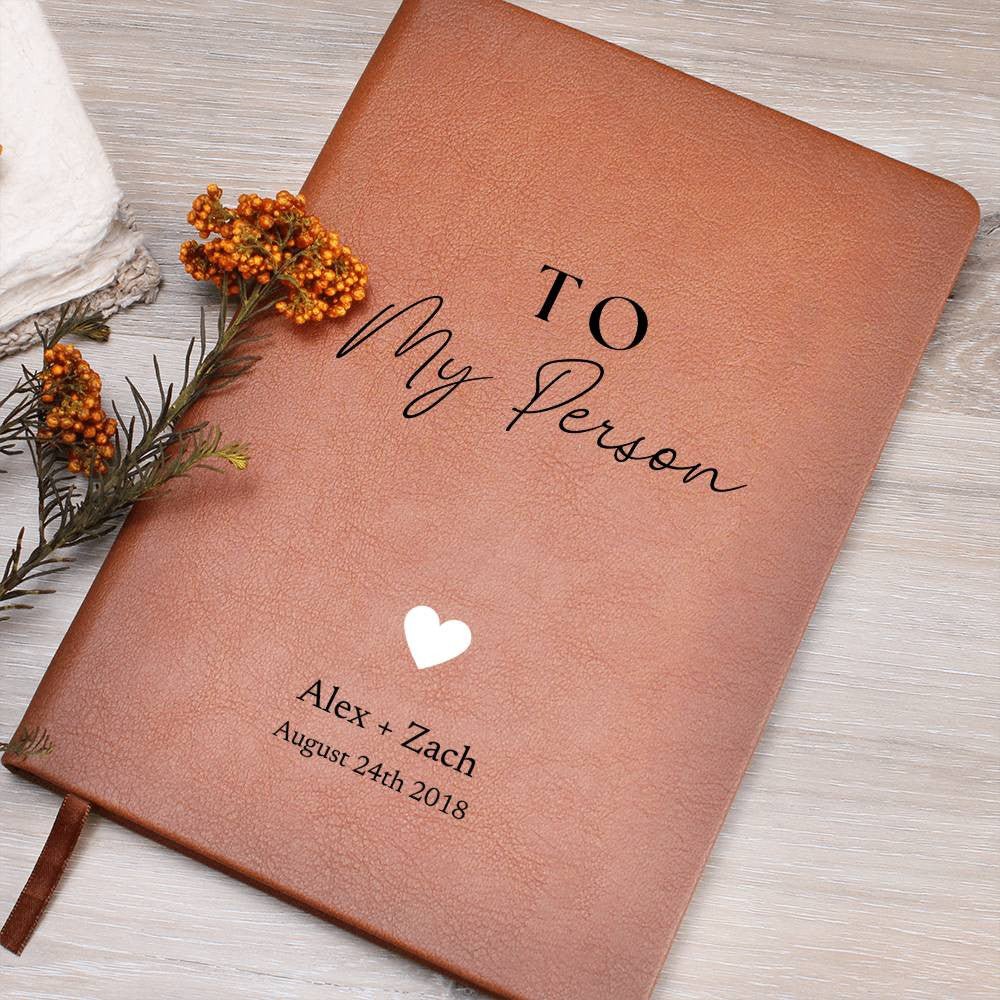 TO
My Person
Alex + Zach
August 24th 2018